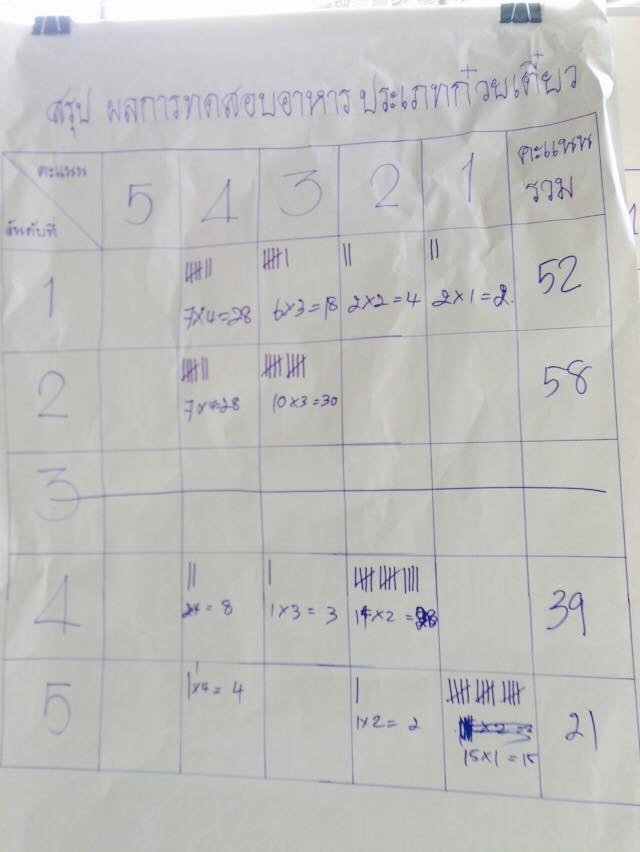 สรุป ผลการทดสอบอาหาร ประเภทก๋วยเตี๋ยว
คะแนน
อันดับที่
5 4 3 2 1 คะแนน
รวม
1 7x4=28 6x3=18 2x2=4 2x1=2. 52
2 7x4=28 10x3=30 58
3
4 = 8 1x3=3 14x2=28 39
5 1x4=4 1x2=2 15x1=15 21